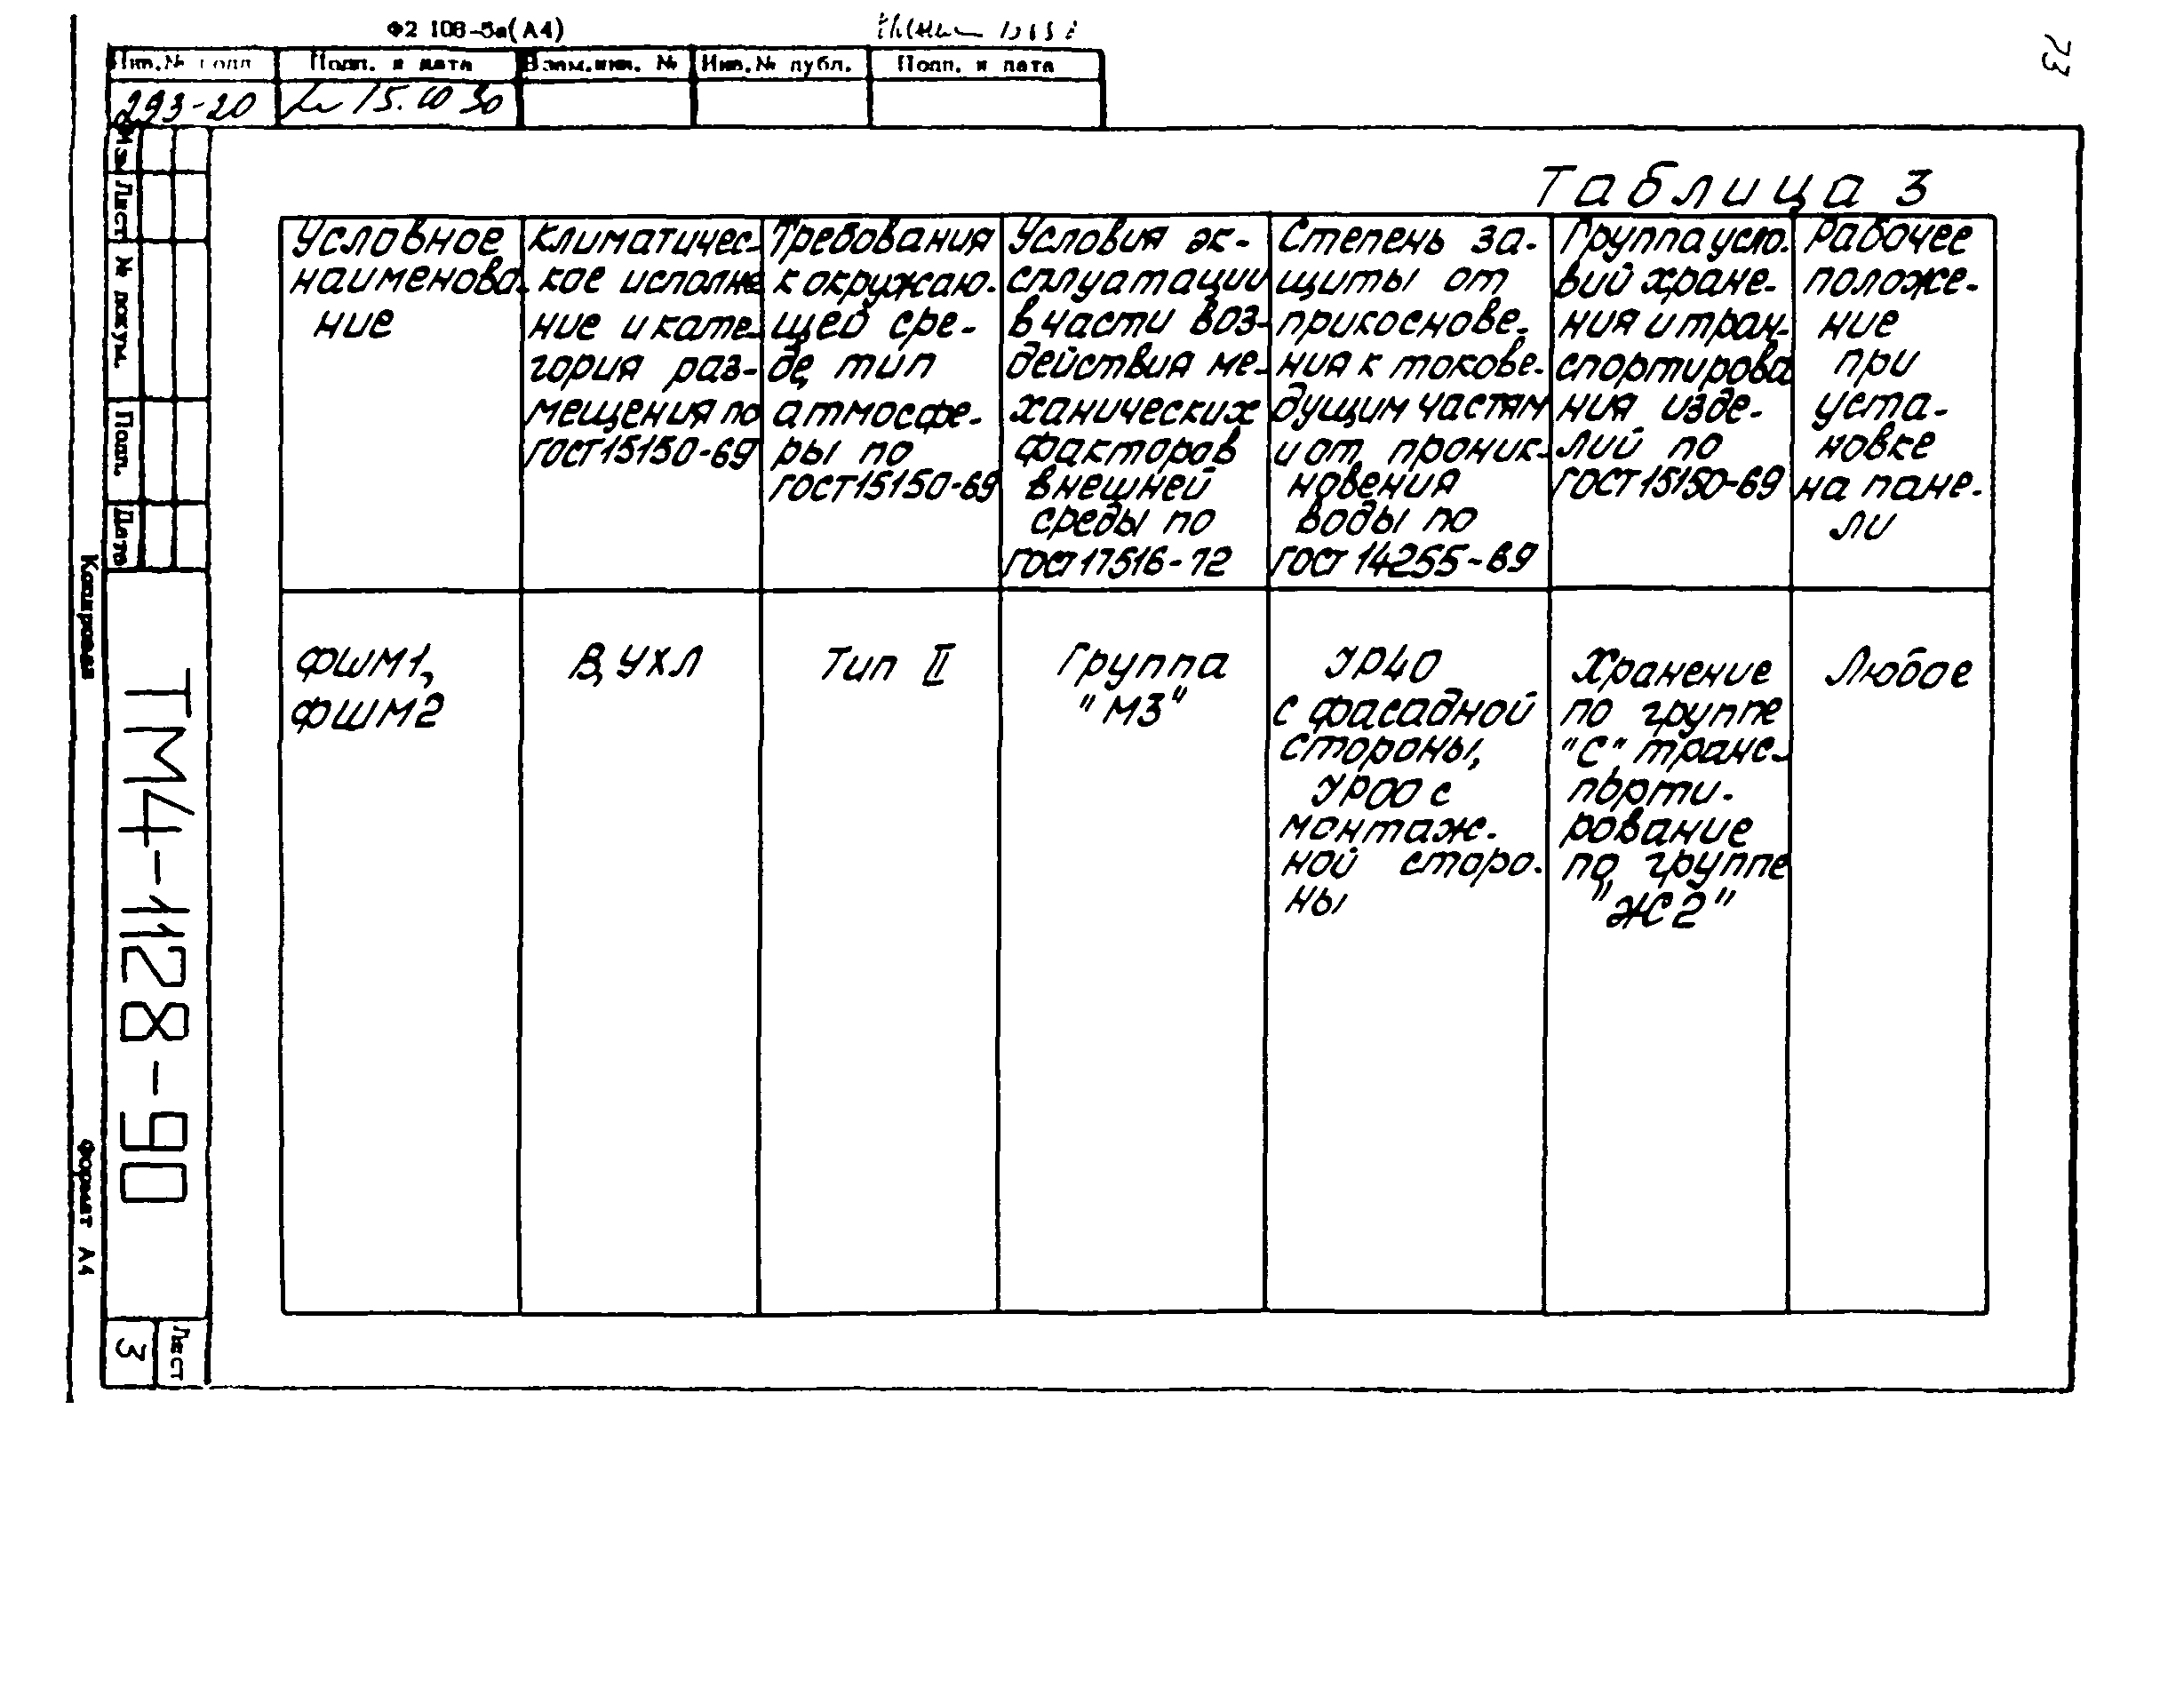 Ф2 108-5а(А4)
73
Инв.№ подл Подп. и дата Взам.инв. № Инв.№ дубл. Подп. и дата
293-20 15.10 90
Таблица 3
Условное
наименова-
ние
Климатичес-
кое исполне
ние и кате-
гория раз-
мещения по
ГОСТ15150-69
Требования
к окружаю-
щей сре-
де, тип
атмосфе-
ры по
ГОСТ15150-69
Условия эк-
сплуатации
в части воз-
действия ме-
ханических
факторов
внешней
среды по
ГОСТ17516-72
Степень за-
щиты от
прикоснове-
ния к токове-
дущим частям
и от проник-
новения
воды по
ГОСТ 14255-69
Группа усло-
вий хране-
ния и тран-
спортирова
ния изде-
лий по
ГОСТ15150-69
Рабочее
положе-
ние
при
уста-
новке
на пане-
ли
ФШМ1,
ФШМ2
В, УХЛ
Тип II
Группа
"М3"
УР40
с фасадной
стороны,
УР00 с
монтаж-
ной сторо-
ны
Хранение
по группе
"С", транс-
порти-
рование
по группе
"Ж2"
Любое
Изм Лист № докум. Подп. Дата
ТМ4-1128-90
Лист
3
Копировал
Формат А4